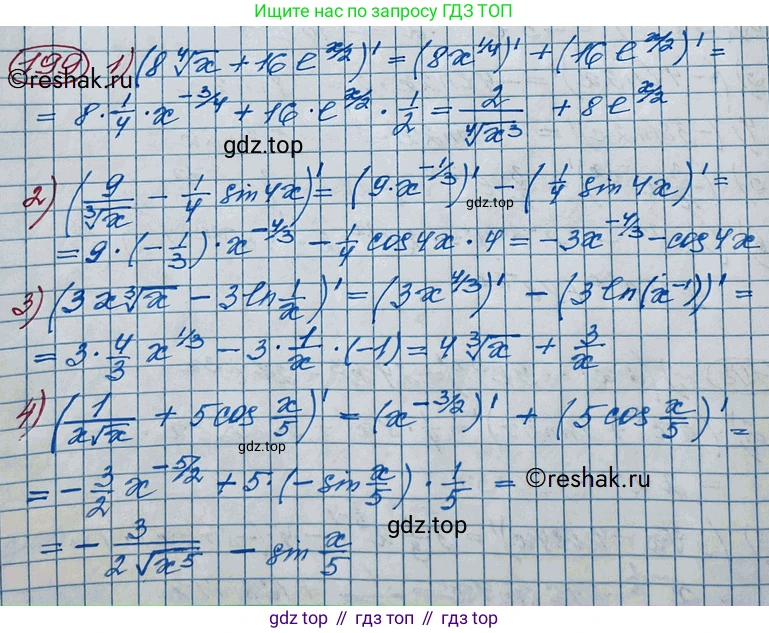 Ищите по запросу ГДЗ ТОП
199. 1) (8 ∜x + 16 e^(x/2))' = (8x^(1/4))' + (16 e^(x/2))' =
©reshak.ru
= 8 · 1/4 · x^(-3/4) + 16 · e^(x/2) · 1/2 = 2/∜(x³) + 8e^(x/2)
gdz.top
2) (9/∛x - 1/4 sin 4x)' = (9 · x^(-1/3))' - (1/4 sin 4x)' =
gdz.top
= 9 · (-1/3) · x^(-4/3) - 1/4 cos 4x · 4 = -3x^(-4/3) - cos 4x
3) (3x ∛x - 3 ln 1/x)' = (3x^(4/3))' - (3 ln(x^(-1)))' =
= 3 · 4/3 x^(1/3) - 3 · 1/x · (-1) = 4 ∛x + 3/x
4) (1/(x√x) + 5 cos x/5)' = (x^(-3/2))' + (5 cos x/5)' =
gdz.top
= -3/2 x^(-5/2) + 5 · (-sin x/5) · 1/5 =
©reshak.ru
gdz.top
= - 3/(2√(x⁵)) - sin x/5
gdz top // гдз топ // gdz.top // гдз.топ